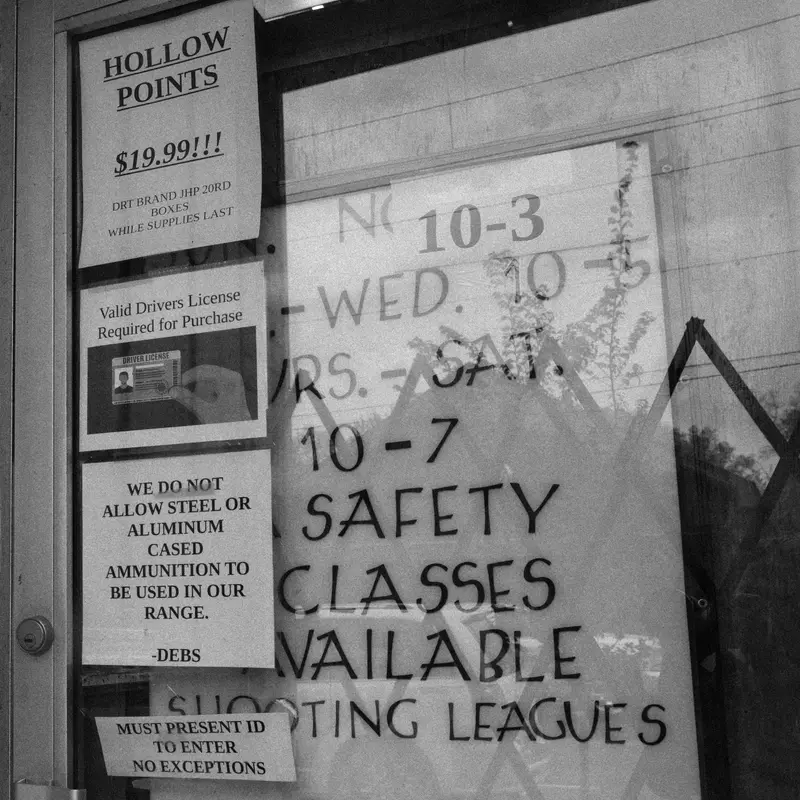 HOLLOW
POINTS
$19.99!!!
DRT BRAND JHP 20RD
BOXES
WHILE SUPPLIES LAST
Valid Drivers License
Required for Purchase
DRIVER LICENSE
WE DO NOT
ALLOW STEEL OR
ALUMINUM
CASED
AMMUNITION TO
BE USED IN OUR
RANGE.
-DEBS
MUST PRESENT ID
TO ENTER
NO EXCEPTIONS
10-3
-WED. 10-5
RS.-SAT.
10-7
SAFETY
CLASSES
AVAILABLE
SHOOTING LEAGUES